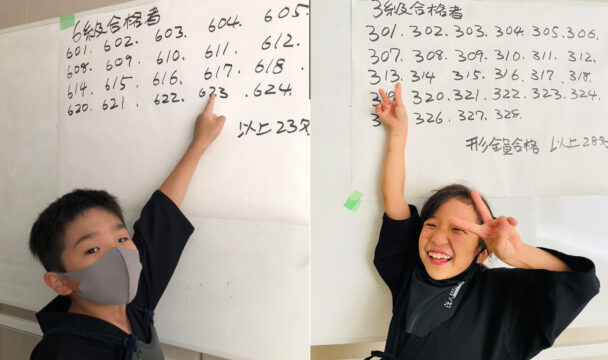 6級合格者
601. 602. 603. 604. 605.
608. 609. 610. 611. 612.
614. 615. 616. 617. 618.
620. 621. 622. 623 .624.
以上23名
3級合格者
301. 302. 303. 304. 305. 306.
307. 308. 309. 310. 311. 312.
313. 314 315. 316. 317. 318.
320. 321. 322. 323. 324.
326. 327. 328.
形全員合格 以上28名